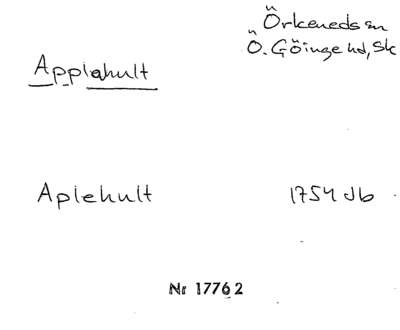 Örkeneds sn
Ö. Göinge hd, Sk
Applahult
Aplehult 1754 Jb
Nr 17762